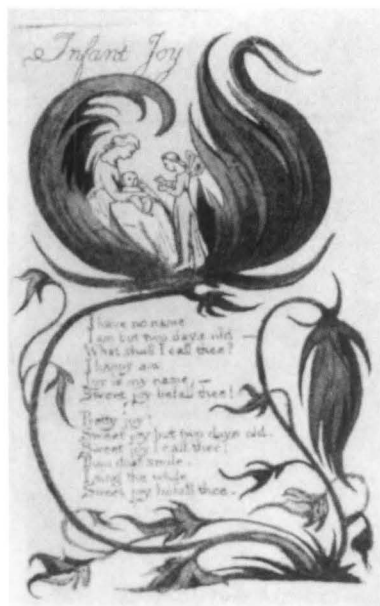 Infant Joy
I have no name
I am but two days old —
What shall I call thee?
I happy am
Joy is my name, —
Sweet joy befall thee!
Pretty joy!
Sweet joy but two days old.
Sweet joy I call thee:
Thou dost smile.
I sing the while
Sweet joy befall thee.